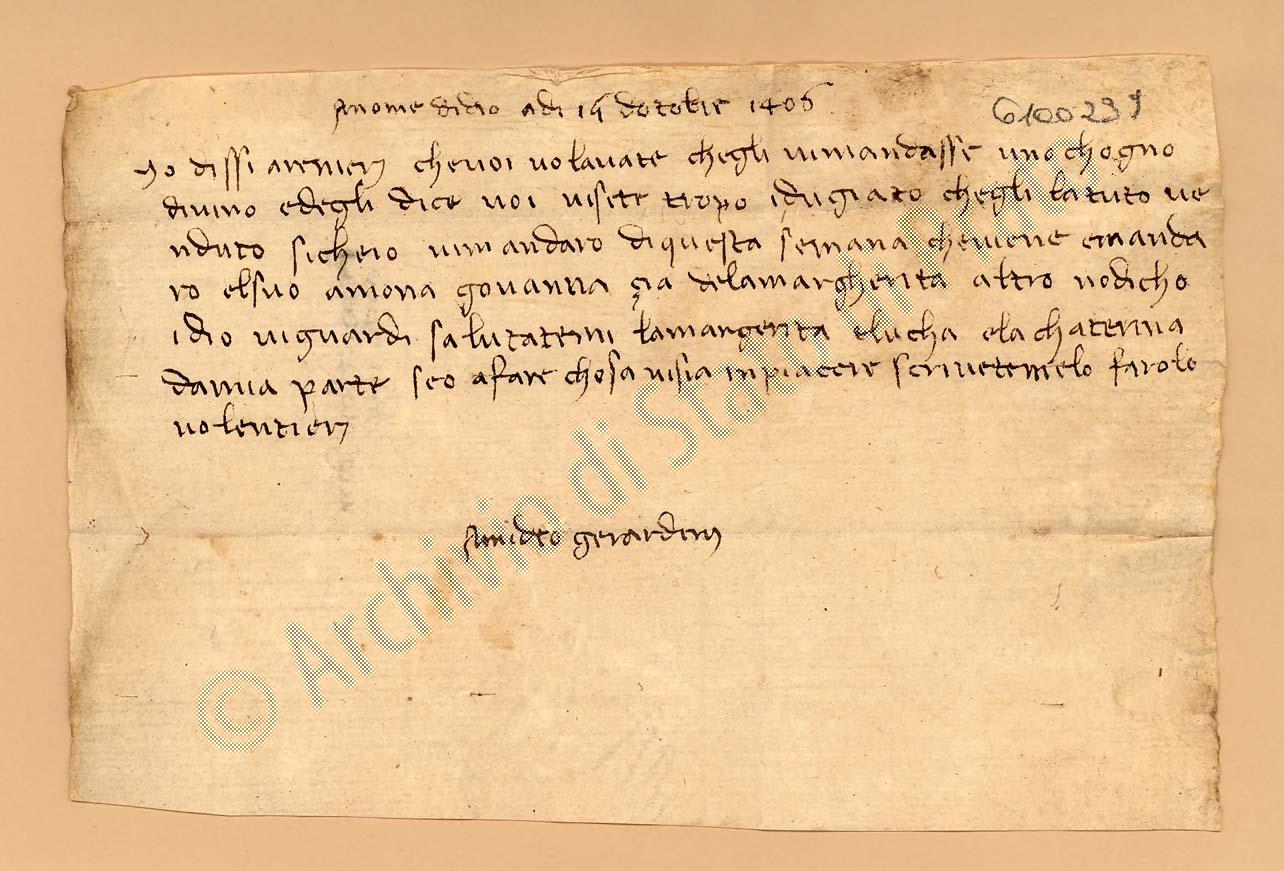 Anome didio adi 15 dotobre 1406
6100239
Jo dissi arenieri chevoi volavate chegli vimandasse uno chogno
divino edegli dice voi visete tropo idugiato chegli latuto ve
nduto sicheio vimandaro diquesta semana cheviene emanda
ro elsuo amona govanna çia delamargherita altro nodicho
idio viguardi salutatemi lamargerita elucha elachaterina
damia parte seo afare chosa visia inpiacere scrivetemelo farolo
volentieri
Amideo gerardini
© Archivio di Stato di Prato